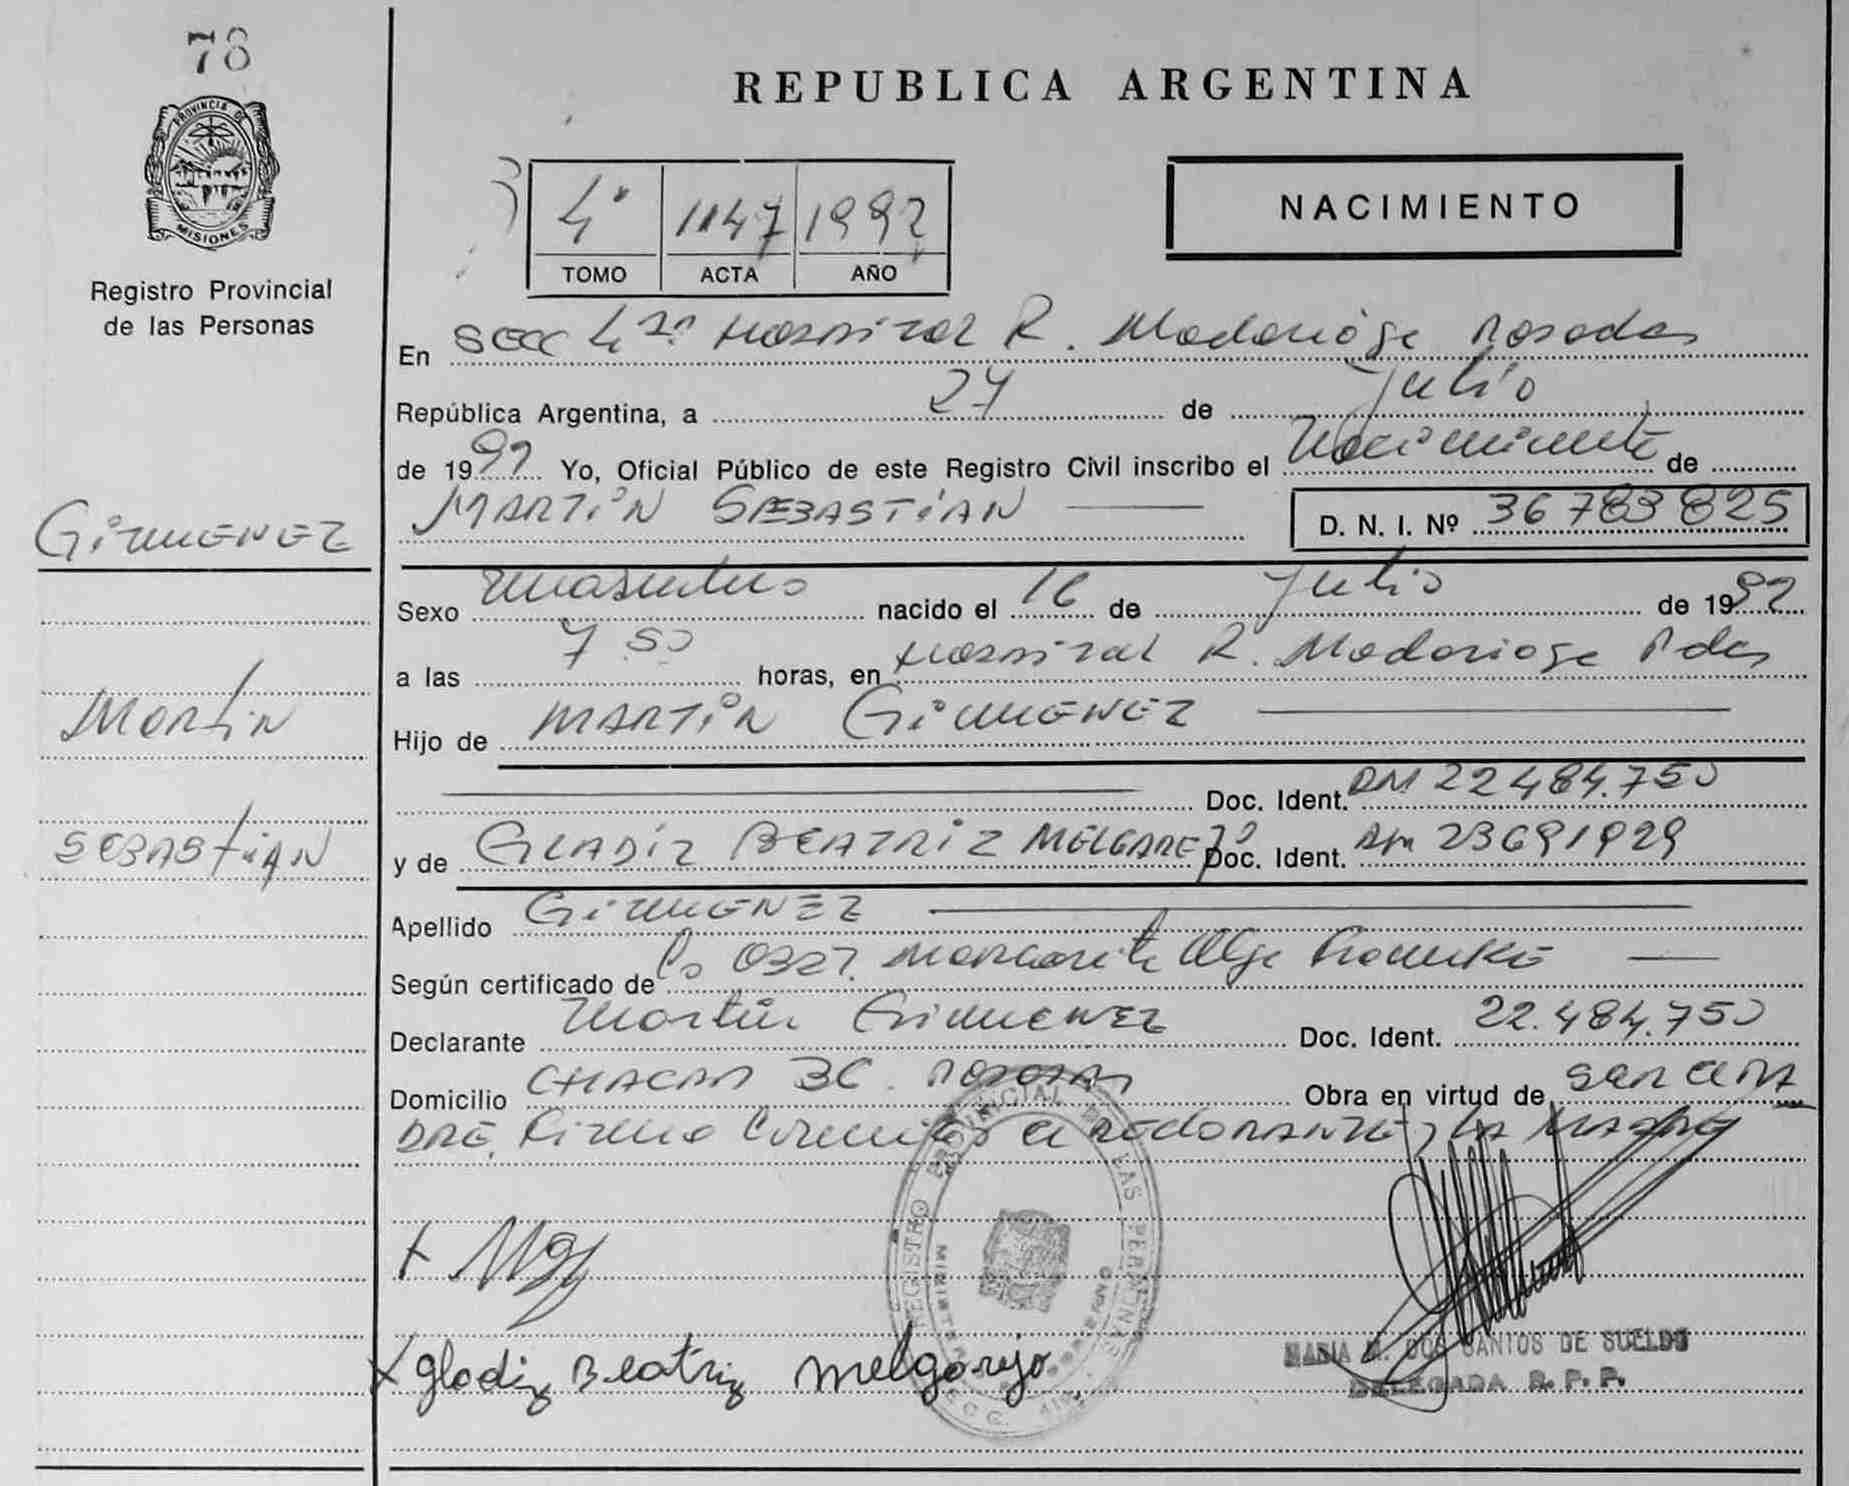 78
PROVINCIA DE
MISIONES
Registro Provincial
de las Personas
GIMENEZ
Martín
SEBASTIAN
REPUBLICA ARGENTINA
4° 1147 1992
TOMO ACTA AÑO
NACIMIENTO
En Secc 4ta Hospital R. Madariaga Posadas
República Argentina, a 27 de Julio
de 1992 Yo, Oficial Público de este Registro Civil inscribo el Nacimiento de
MARTIN SEBASTIAN D. N. I. Nº 36 783 825
Sexo masculino nacido el 16 de Julio de 1992
a las 7 50 horas, en Hospital R. Madariaga Pdas
Hijo de MARTIN GIMENEZ
Doc. Ident. DM 22 484.750
y de GLADIZ BEATRIZ MELGAREJO Doc. Ident. DM 23691929
Apellido GIMENEZ
Según certificado de la Obst. Margarita Olga
Declarante Martín GIMENEZ Doc. Ident. 22.484.750
Domicilio CHACAR 36. POSADAS Obra en virtud de ser el PA
DRE. Firma conmigo el DECLARANTE y LA MADRE
REGISTRO PROVINCIAL DE LAS PERSONAS
x gladiz Beatriz Melgarejo
MARIA M. DOS SANTOS DE SUELDO
DELEGADA R. P. P.